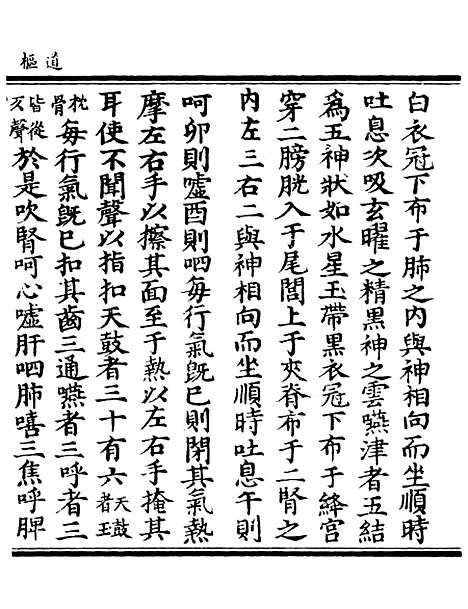 道樞
白衣冠下布于肺之内與神相向而坐順時
吐息次吸玄曜之精黒神之雲嚥津者五結
爲五神狀如水星玉帶黒衣冠下布于絳宫
穿二膀胱入于尾閭上于夾脊布于二腎之
内左三右二與神相向而坐順時吐息午則
呵卯則嘘酉則呬每行氣旣已則閉其氣熱
摩左右手以擦其面至于熱以左右手掩其
耳使不聞聲以指扣天鼓者三十有六天鼓者玉
枕骨每行氣旣已扣其齒三通嚥者三呼者三
皆從歹聲於是吹腎呵心嘘肝呬肺嘻三焦呼脾